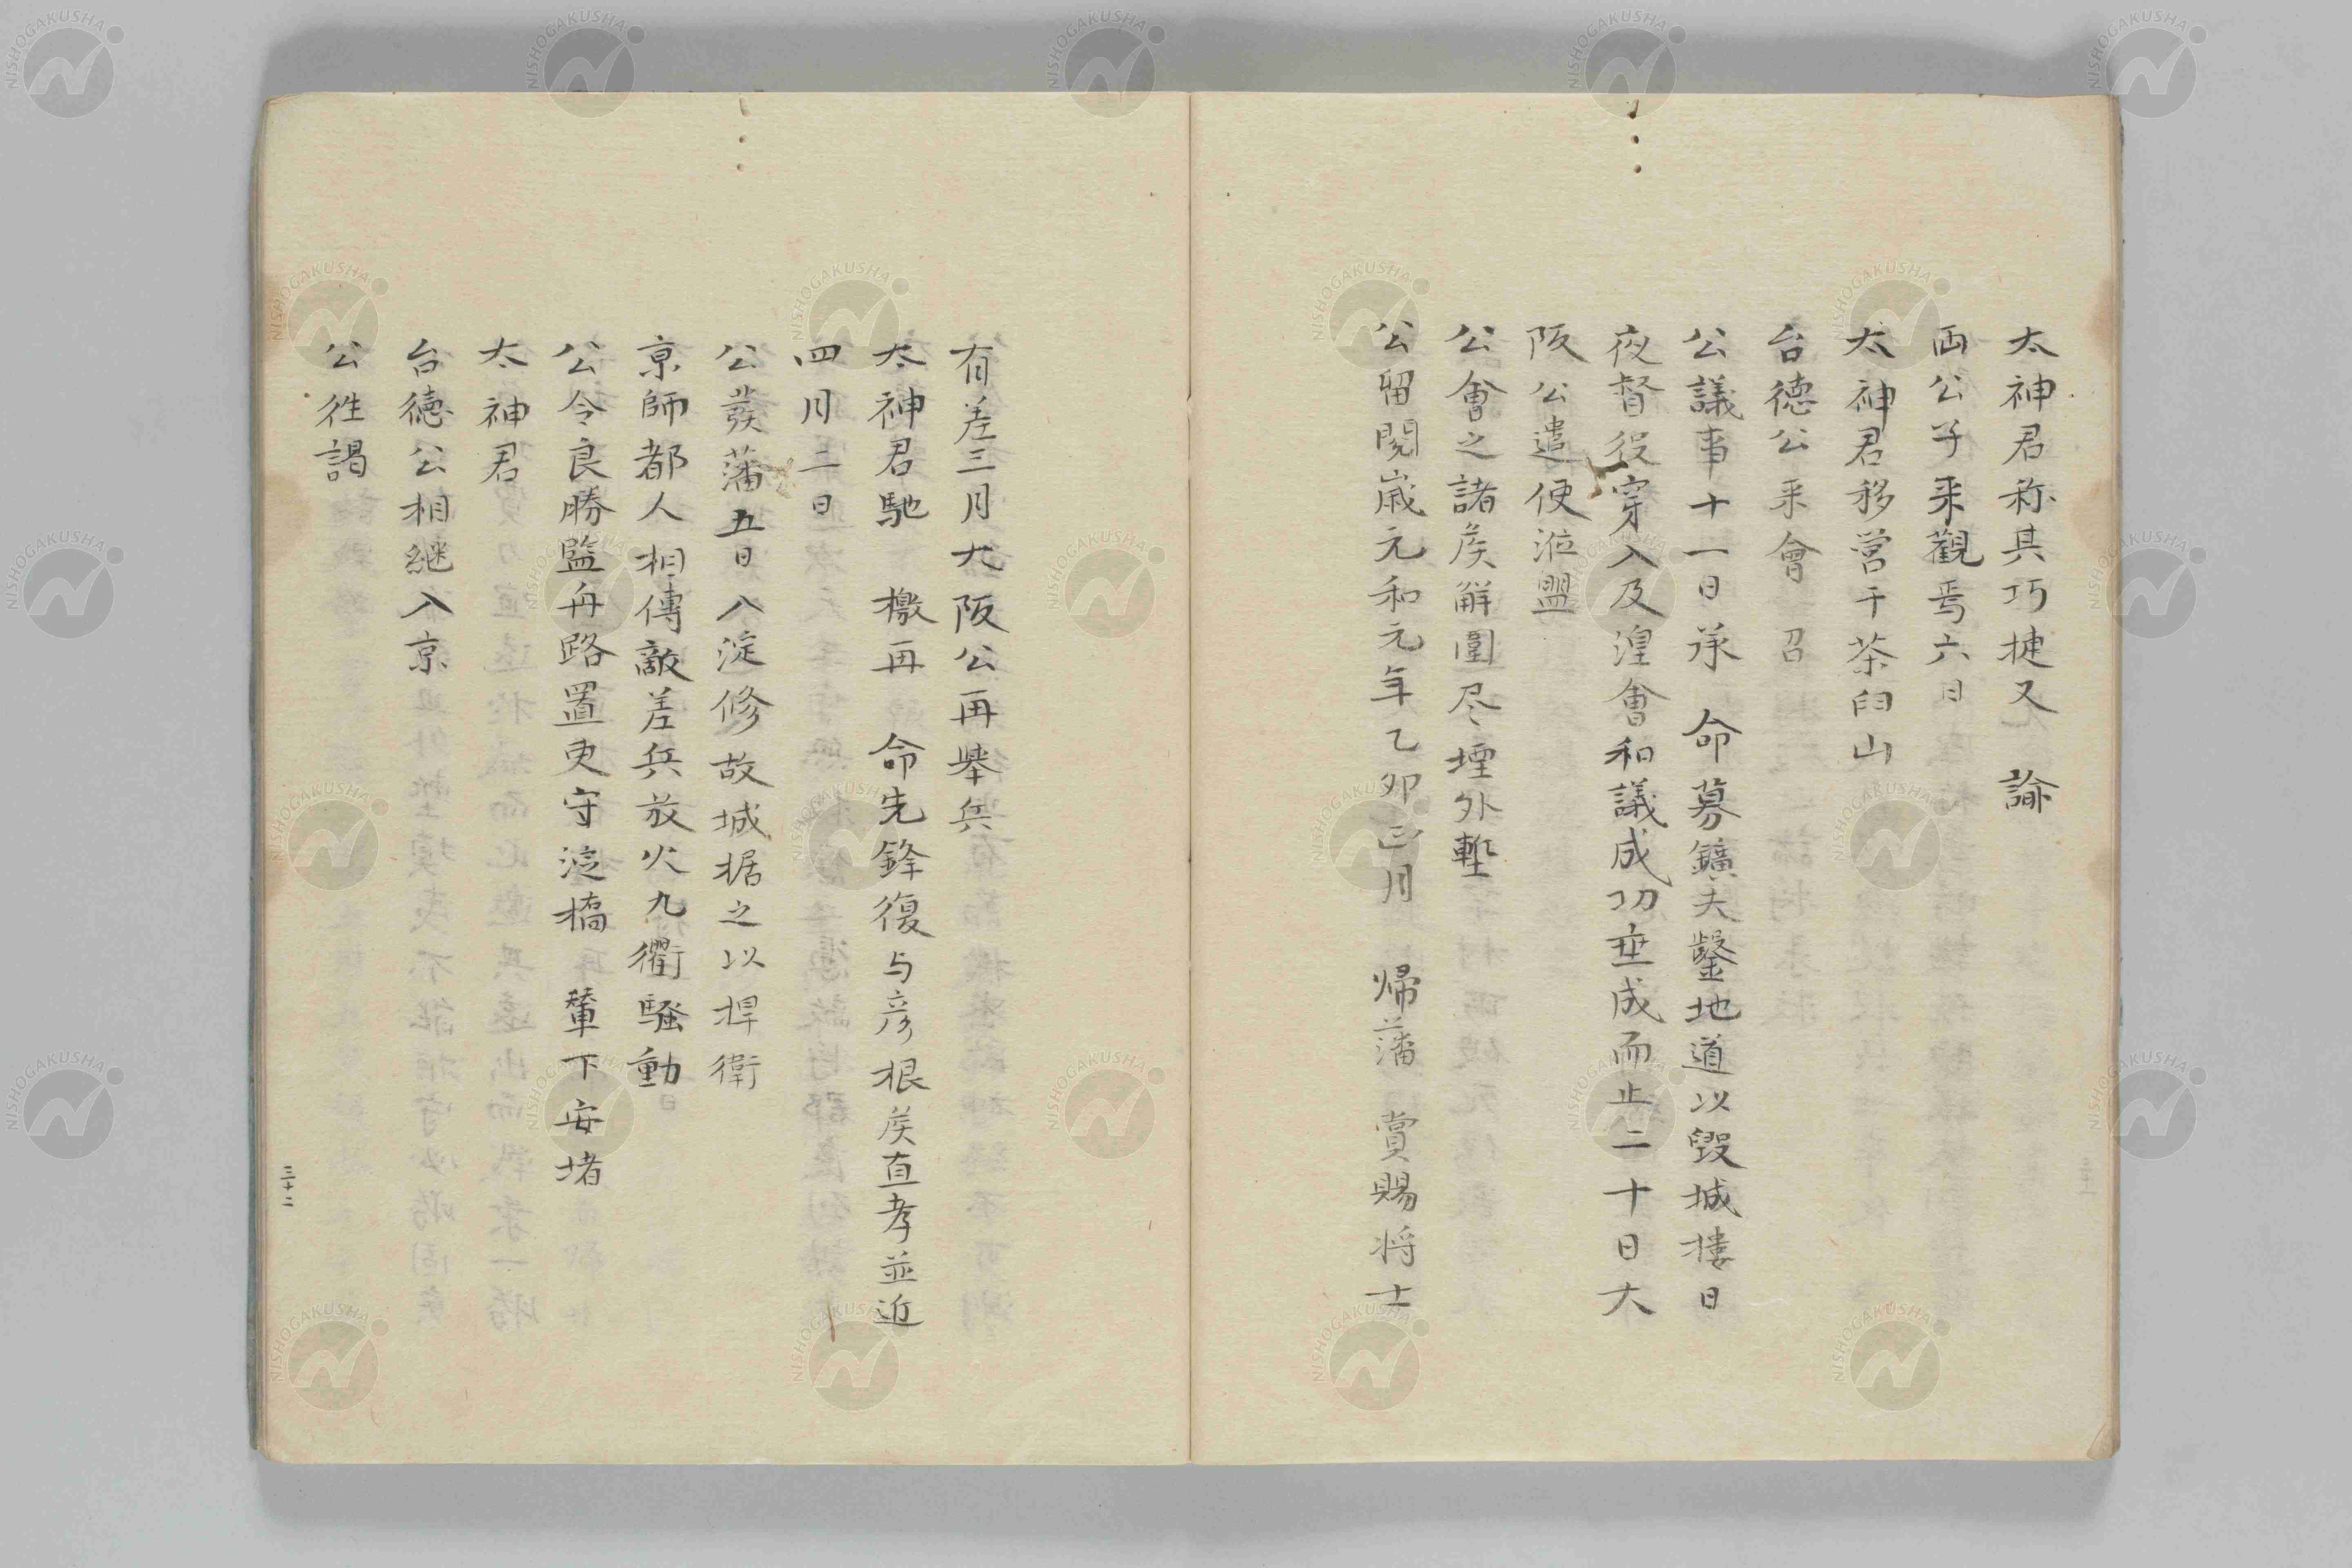 太神君称其巧捷又　諭
両公子来觀焉六日
太神君移営于茶臼山
台徳公来會　召
公議事十一日承　命募鑛夫鑿地道以毀城樓日
夜督役穿入及湟會和議成功垂成而止二十日大
阪公遣使涖盟
公會之諸侯解圍尽堙外塹
公留閲歳元和元年乙卯正月　帰藩　賞賜将士
有差三月大阪公再挙兵
太神君馳　檄再　命先鋒復与彦根侯直孝並近
四月二日
公發藩五日入淀修故城据之以捍衛
京師都人相傳敵差兵放火九衢騒動
公令良勝監舟路置吏守淀橋　輦下安堵
太神君
台徳公相継入京
公往謁
三十二
NISHOGAKUSHA